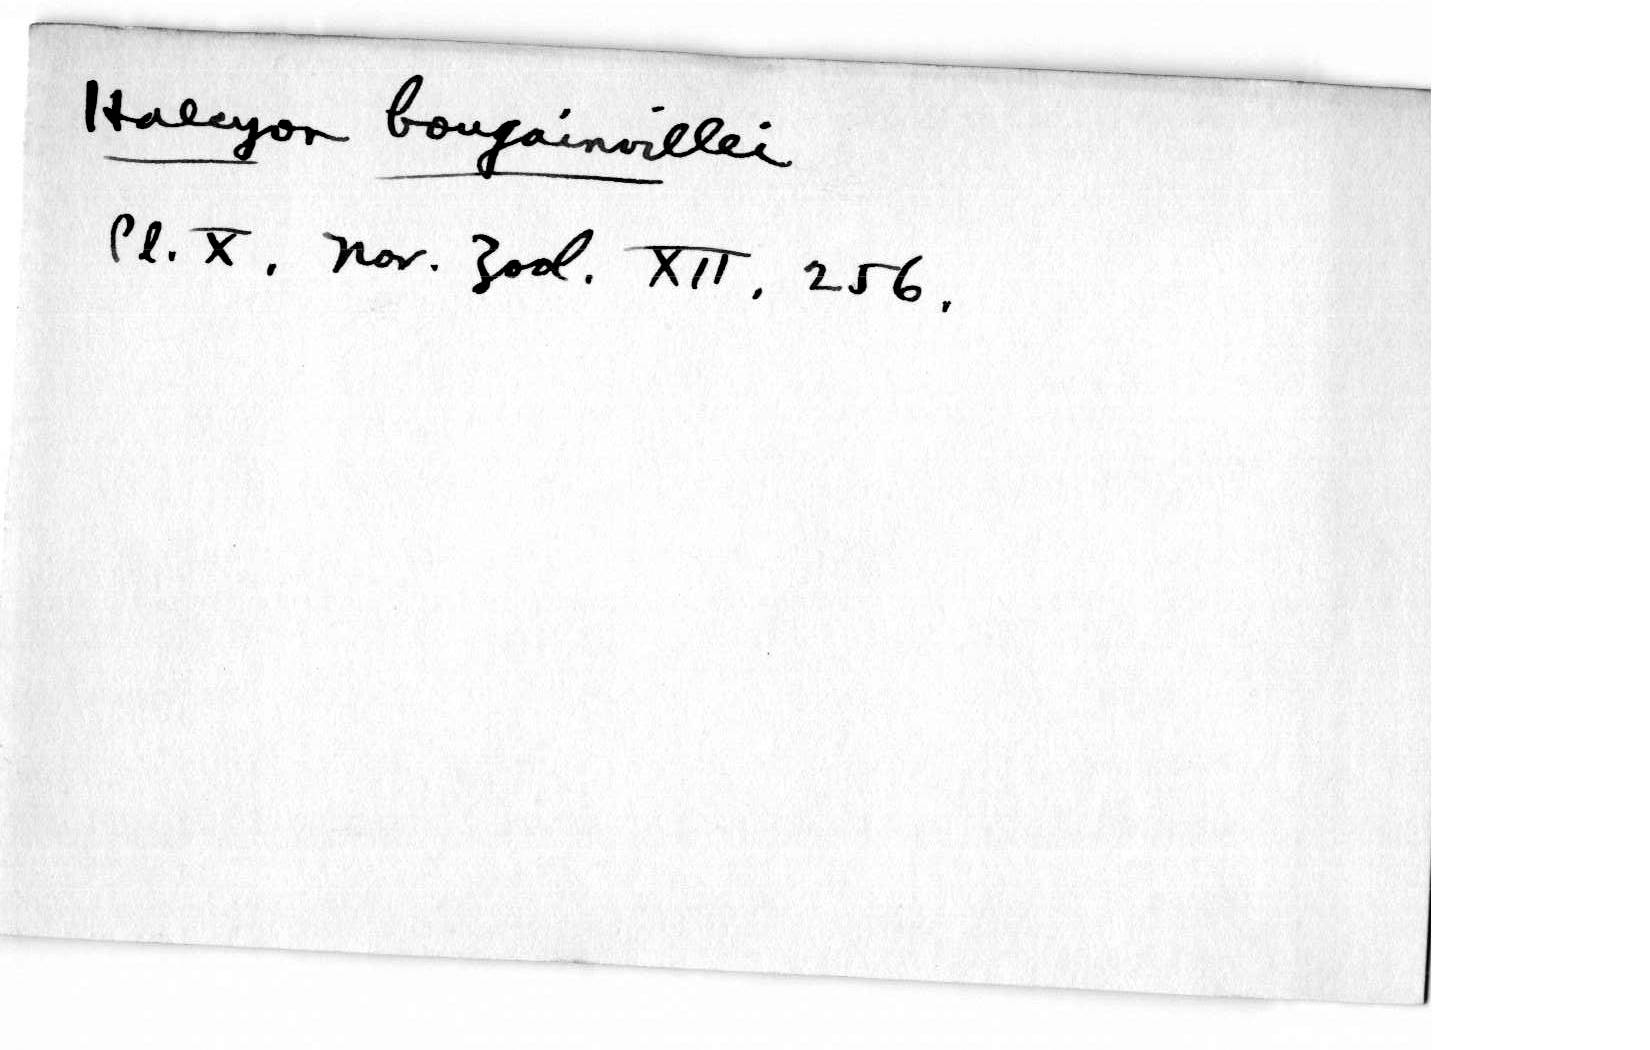 Halcyon bougainvillei
Pl. X, Nov. Zool. XII, 256.